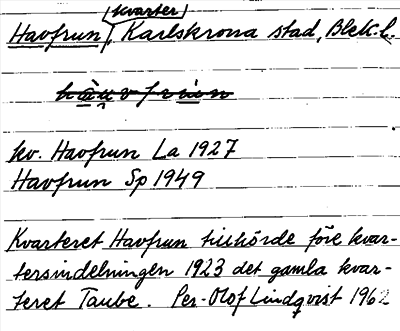 Havfrun (kvarter), Karlskrona stad, Blek. l.
kv. Havfrun La 1927
Havfrun Sp 1949
Kvarteret Havfrun tillhörde före kvar-
tersindelningen 1923 det gamla kvar-
teret Taube. Per-Olof Lindqvist 1962